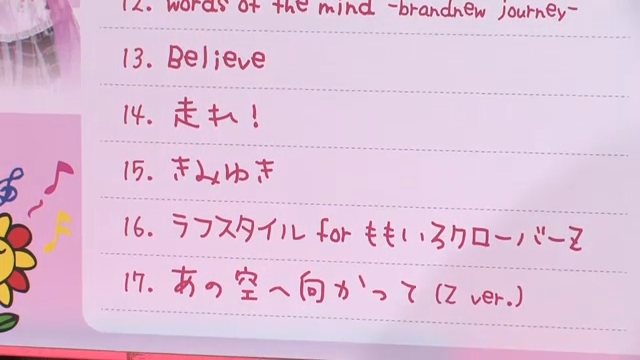 12. words of the mind -brandnew journey-
13. Believe
14. 走れ!
15. きみゆき
16. ラフスタイル for ももいろクローバーZ
17. あの空へ向かって (Z ver.)